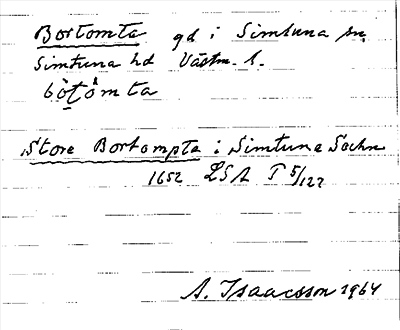 Bortomta gd i Simtuna sn,
Simtuna hd Västm. l.
bòṭòmta
Store Bortompta i Simtuna Sochn
1652 LSA T 5/122
A. Isaacsson 1964